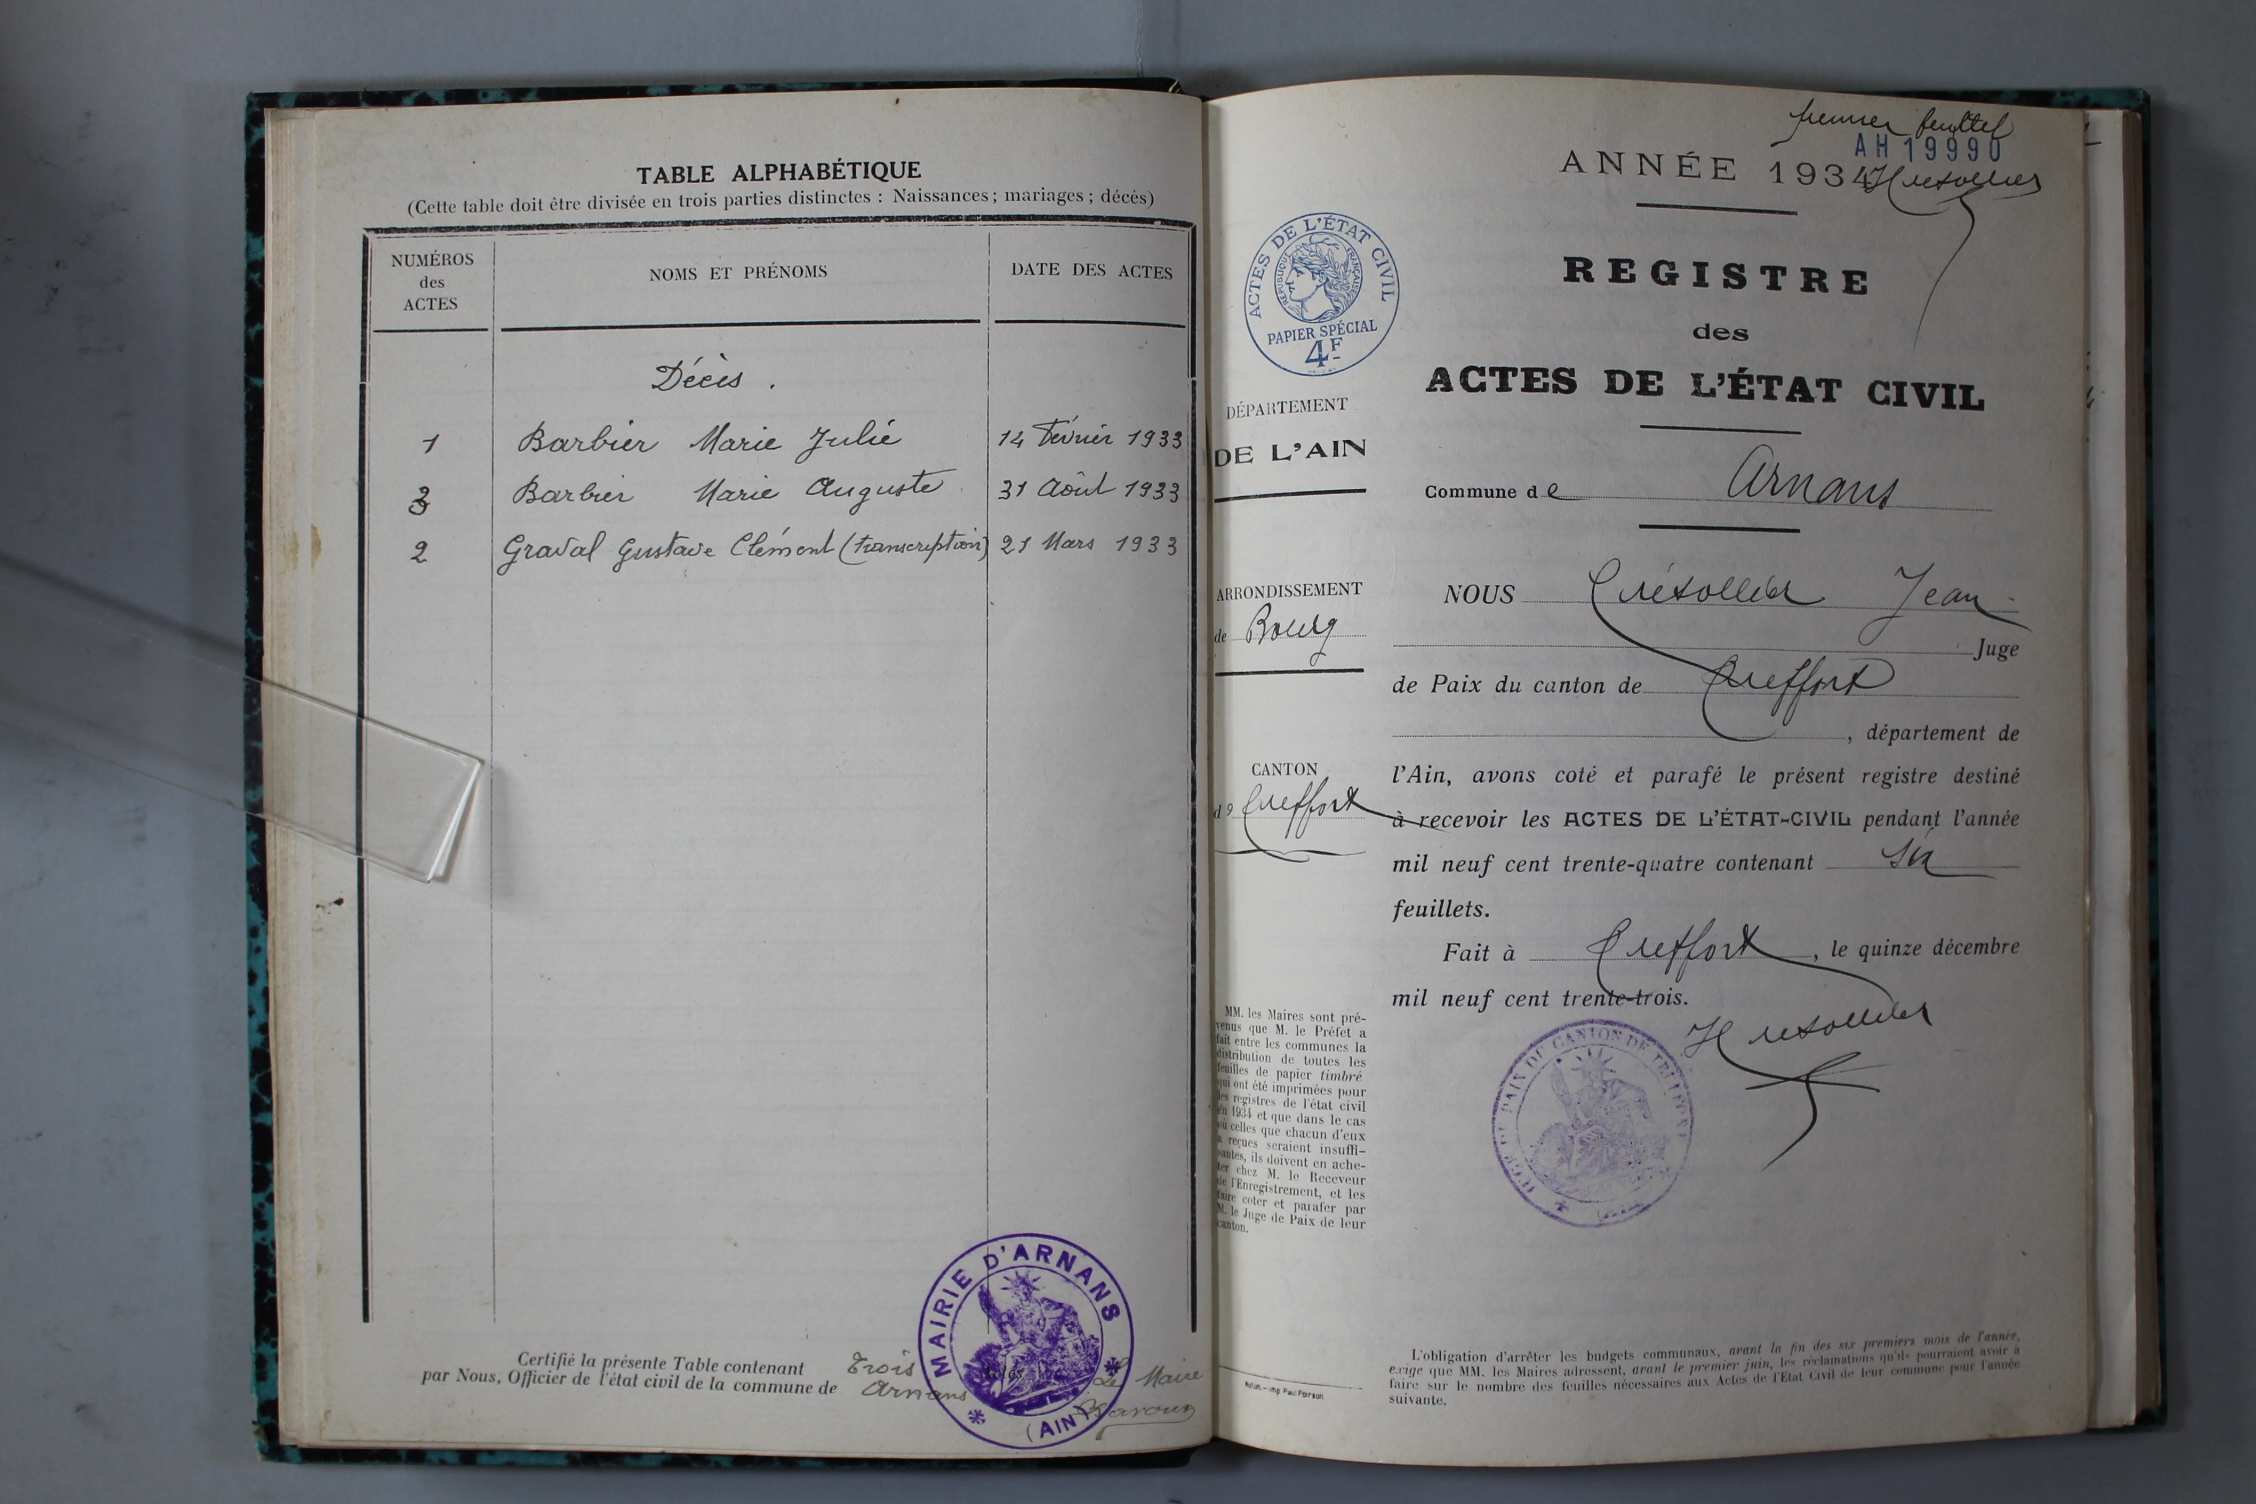 TABLE ALPHABÉTIQUE
(Cette table doit être divisée en trois parties distinctes : Naissances ; mariages ; décès)
NUMÉROS des ACTES
NOMS ET PRÉNOMS
DATE DES ACTES
Décès.
1 Barbier Marie Julie 14 Février 1933
3 Barbier Marie Auguste 31 Août 1933
2 Graval Gustave Clément (transcription) 21 Mars 1933
Certifié la présente Table contenant Trois actes
par Nous, Officier de l'état civil de la commune de Arnans Le Maire
MAIRIE D'ARNANS
(AIN)
premier feuillet
AH 19990
ANNÉE 1934
ACTES DE L'ÉTAT CIVIL
RÉPUBLIQUE FRANÇAISE
PAPIER SPÉCIAL
4F
REGISTRE
des
ACTES DE L'ÉTAT CIVIL
DÉPARTEMENT
DE L'AIN
Commune de Arnans
ARRONDISSEMENT
de Bourg
CANTON
de Treffort
NOUS Jean
Juge
de Paix du canton de Treffort
, département de
l'Ain, avons coté et parafé le présent registre destiné
à recevoir les ACTES DE L'ÉTAT-CIVIL pendant l'année
mil neuf cent trente-quatre contenant six
feuillets.
Fait à Treffort, le quinze décembre
mil neuf cent trente-trois.
MM. les Maires sont pré-
venus que M. le Préfet a
fait entre les communes la
distribution de toutes les
feuilles de papier timbré
qui ont été imprimées pour
les registres de l'état civil
en 1934 et que dans le cas
où celles que chacun d'eux
a reçues seraient insuffi-
santes, ils doivent en ache-
ter chez M. le Receveur
de l'Enregistrement, et les
faire coter et parafer par
M. le Juge de Paix de leur
canton.
PAIX DU CANTON DE TREFFORT
L'obligation d'arrêter les budgets communaux, avant la fin des six premiers mois de l'année,
exige que MM. les Maires adressent, avant le premier juin, les réclamations qu'ils pourraient avoir à
faire sur le nombre des feuilles nécessaires aux Actes de l'Etat Civil de leur commune pour l'année
suivante.